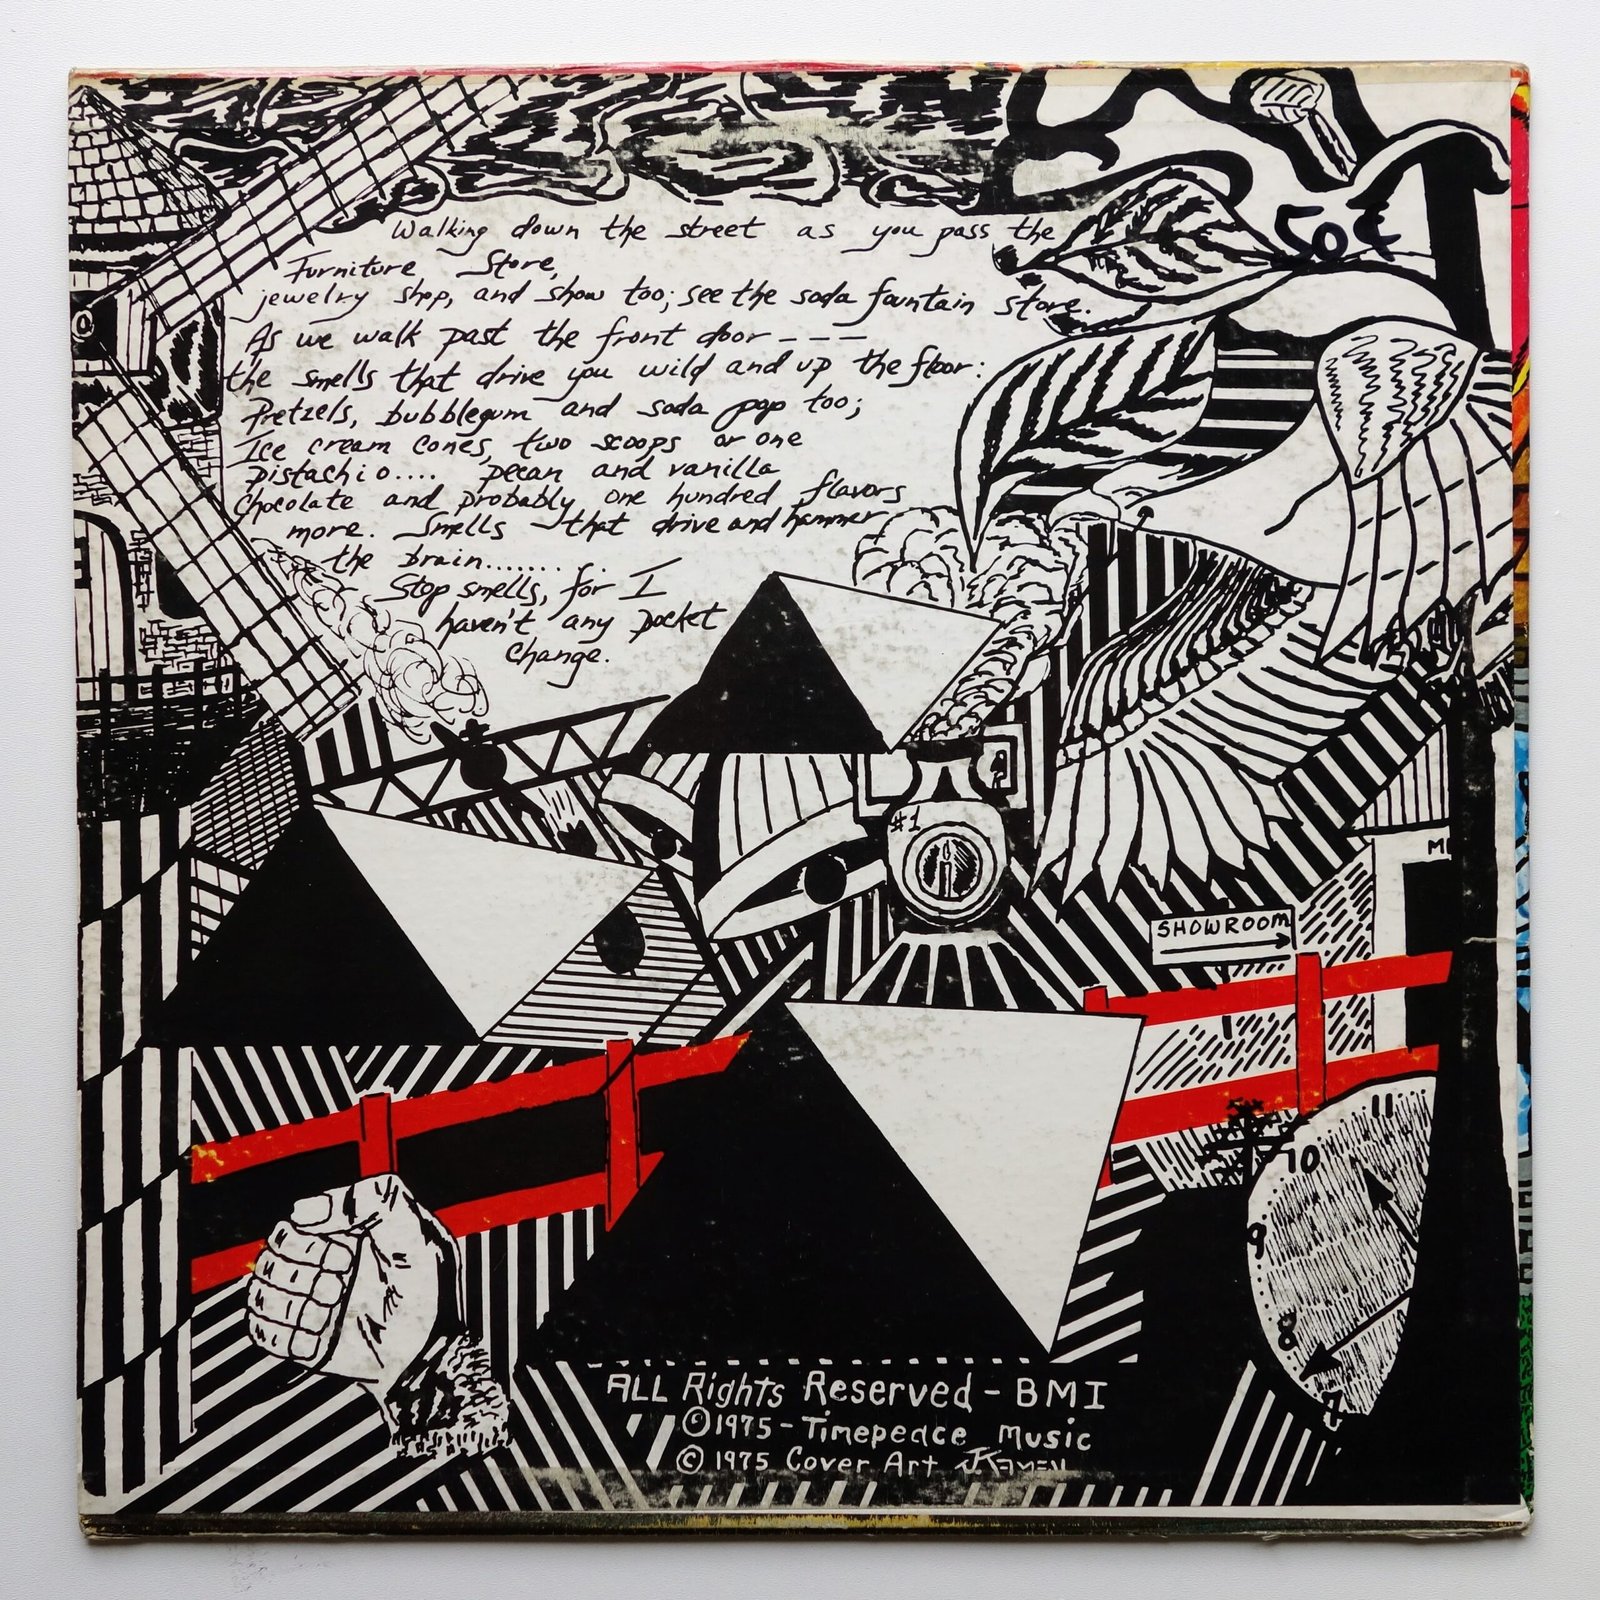 Walking down the street as you pass the
Furniture Store,
jewelry shop, and show too; see the soda fountain store.
As we walk past the front door ---
the smells that drive you wild and up the floor:
Pretzels, bubblegum and soda pop too;
Ice cream cones, two scoops or one
pistachio.... pecan and vanilla
Chocolate and probably one hundred flavors
more. Smells that drive and hammer
the brain.......
Stop smells, for I
haven't any pocket
change.
50¢
#1
M
SHOWROOM
11
10
9
8
7
ALL Rights Reserved - BMI
©1975 - Timepeace Music
© 1975 Cover Art